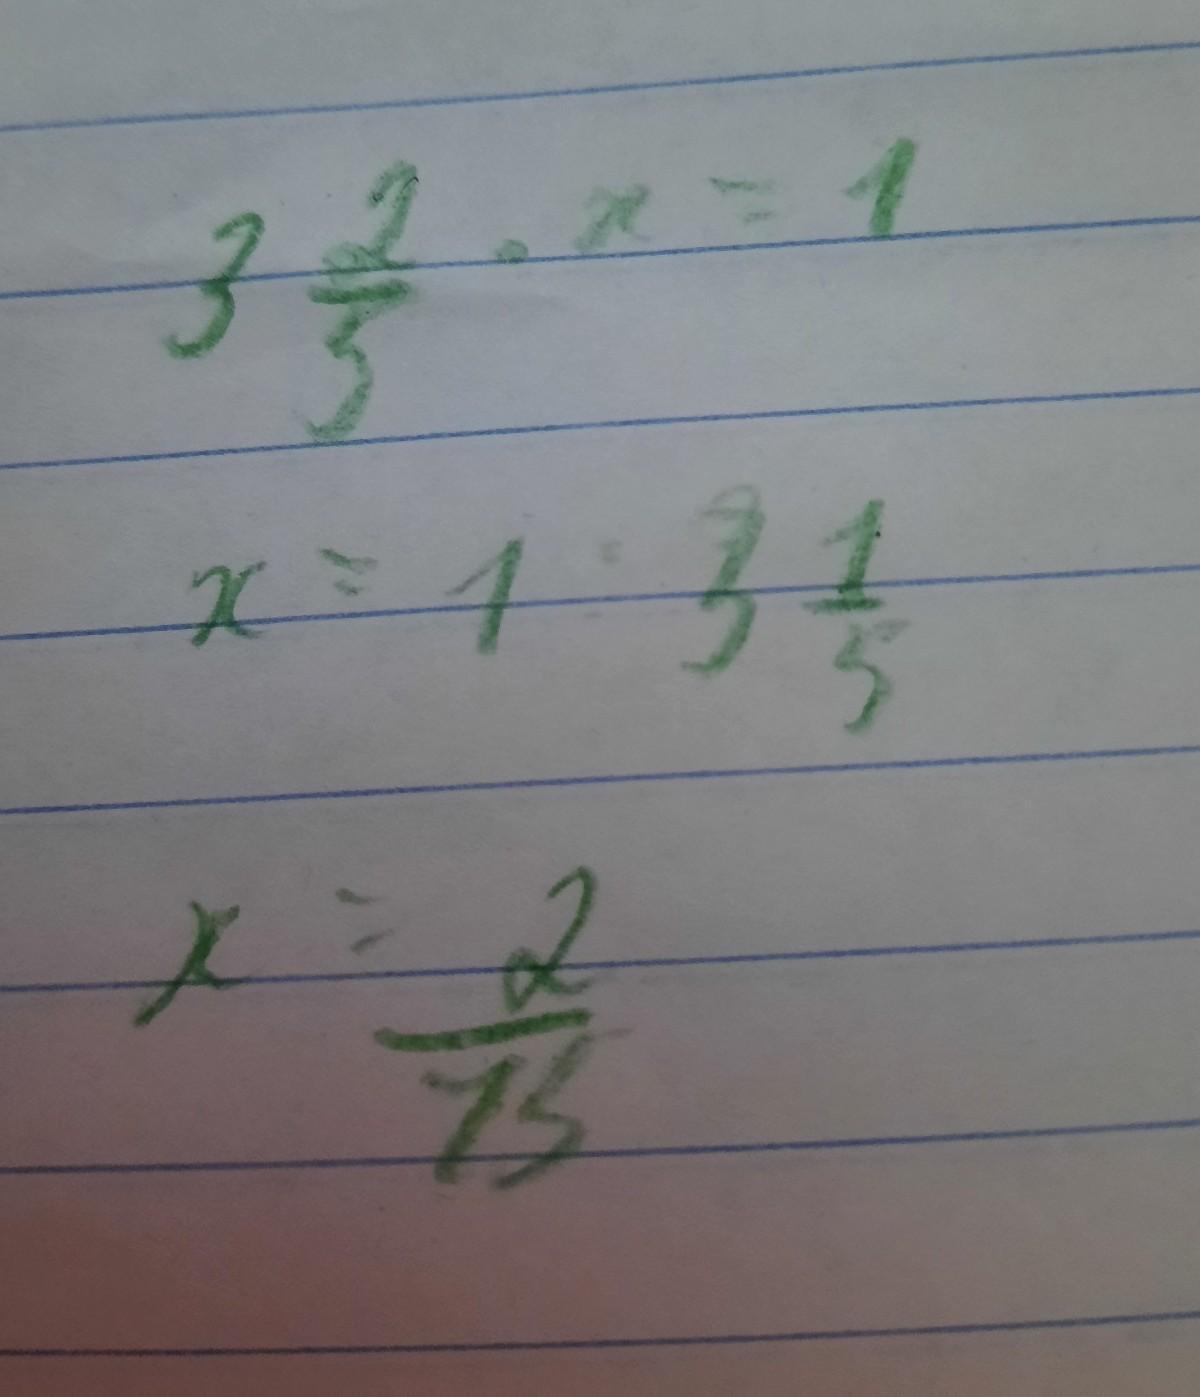 3 2/5 · x = 1
x = 1 : 3 1/5
x = 2/15